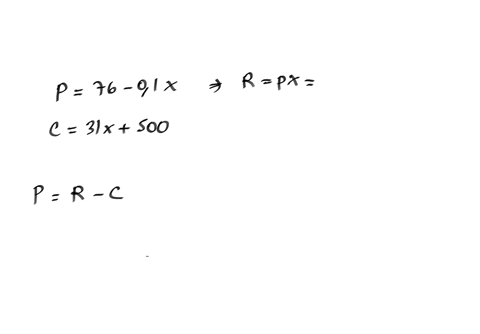 P = 76 - 0,1x ⇒ R = px =
C = 31x + 500
P = R - C